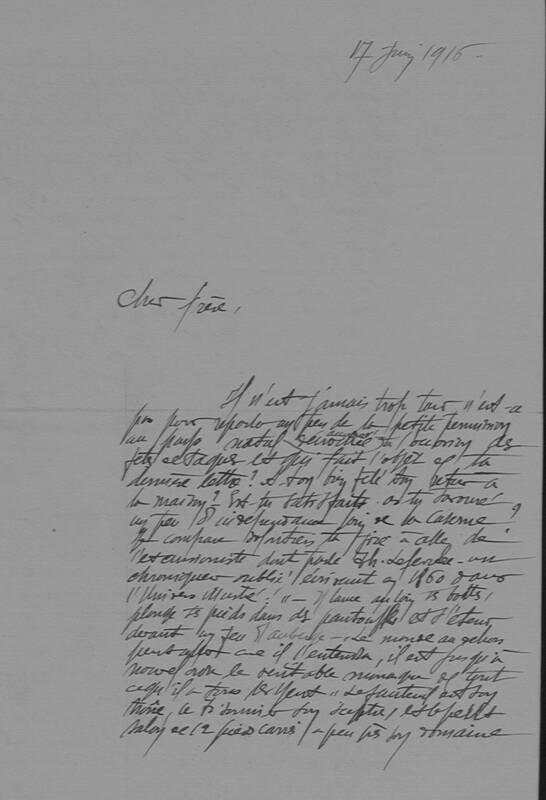 17 Juin 1916 -
Cher frère,
Il n'est jamais trop tard n'est-ce
pas pour reparler un peu de la petite permission
au pays natal à l'occasion des
fêtes et qui fait l'objet de ta
dernière lettre! A-t-on bien fêté ton retour à
la maison? Es-tu satisfait? as-tu savouré
un peu d'indépendance loin de la caserne?
Je compare ta joie à celle de
l'excursionniste dont parle Th. Lefebvre - un
chroniqueur oublié! écrivant en 1860 dans
l'Univers illustré: " - Il lance au loin ses bottes,
plonge ses pieds dans des pantoufles et s'étend
devant un feu d' - Le monde au dehors
peut aller comme il l'entendra, il est jusqu'à
nouvel ordre le véritable monarque de tout
ce qu'il a sous les yeux. Le fauteuil est son
trône, le tisonnier son sceptre, et le petit
salon de 12 pieds carrés à peu près son domaine